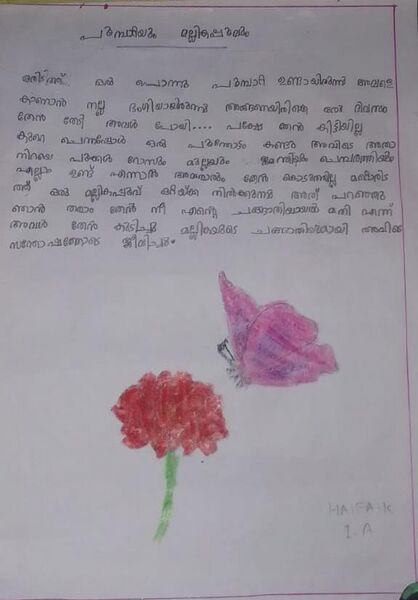 പൂമ്പാറ്റയും മല്ലികപ്പൂവും
ഒരിടത്ത് ഒരു പൊന്നു പൂമ്പാറ്റ ഉണ്ടായിരുന്നു അവളെ
കാണാൻ നല്ല ഭംഗിയായിരുന്നു അങ്ങനെയിരിക്കെ ഒരു ദിവസം
തേൻ തേടി അവൾ പോയി.... പക്ഷേ തേൻ കിട്ടിയില്ല
കുറെ ചെന്നപ്പോൾ ഒരു പൂന്തോട്ടം കണ്ടു അവിടെ അതാ
നിറയെ പൂക്കൾ റോസും മുല്ലയും ജമന്തിയും ചെമ്പരത്തിയും
എല്ലാം ഉണ്ട് എന്നാൽ അവരാരും തേൻ കൊടുത്തില്ല
ഒരു മല്ലികപ്പൂവ് ഒറ്റയ്ക്ക് നിൽക്കുന്നു അത് പറഞ്ഞു
ഞാൻ തരാം തേൻ നീ എന്റെ ചങ്ങാതിയായാൽ മതി എന്ന്
അവൾ തേൻ കുടിച്ചു മല്ലിയുടെ ചങ്ങാതിയായി അവിടെ
സന്തോഷത്തോടെ ജീവിച്ചു.
HAIFA-K
1-A